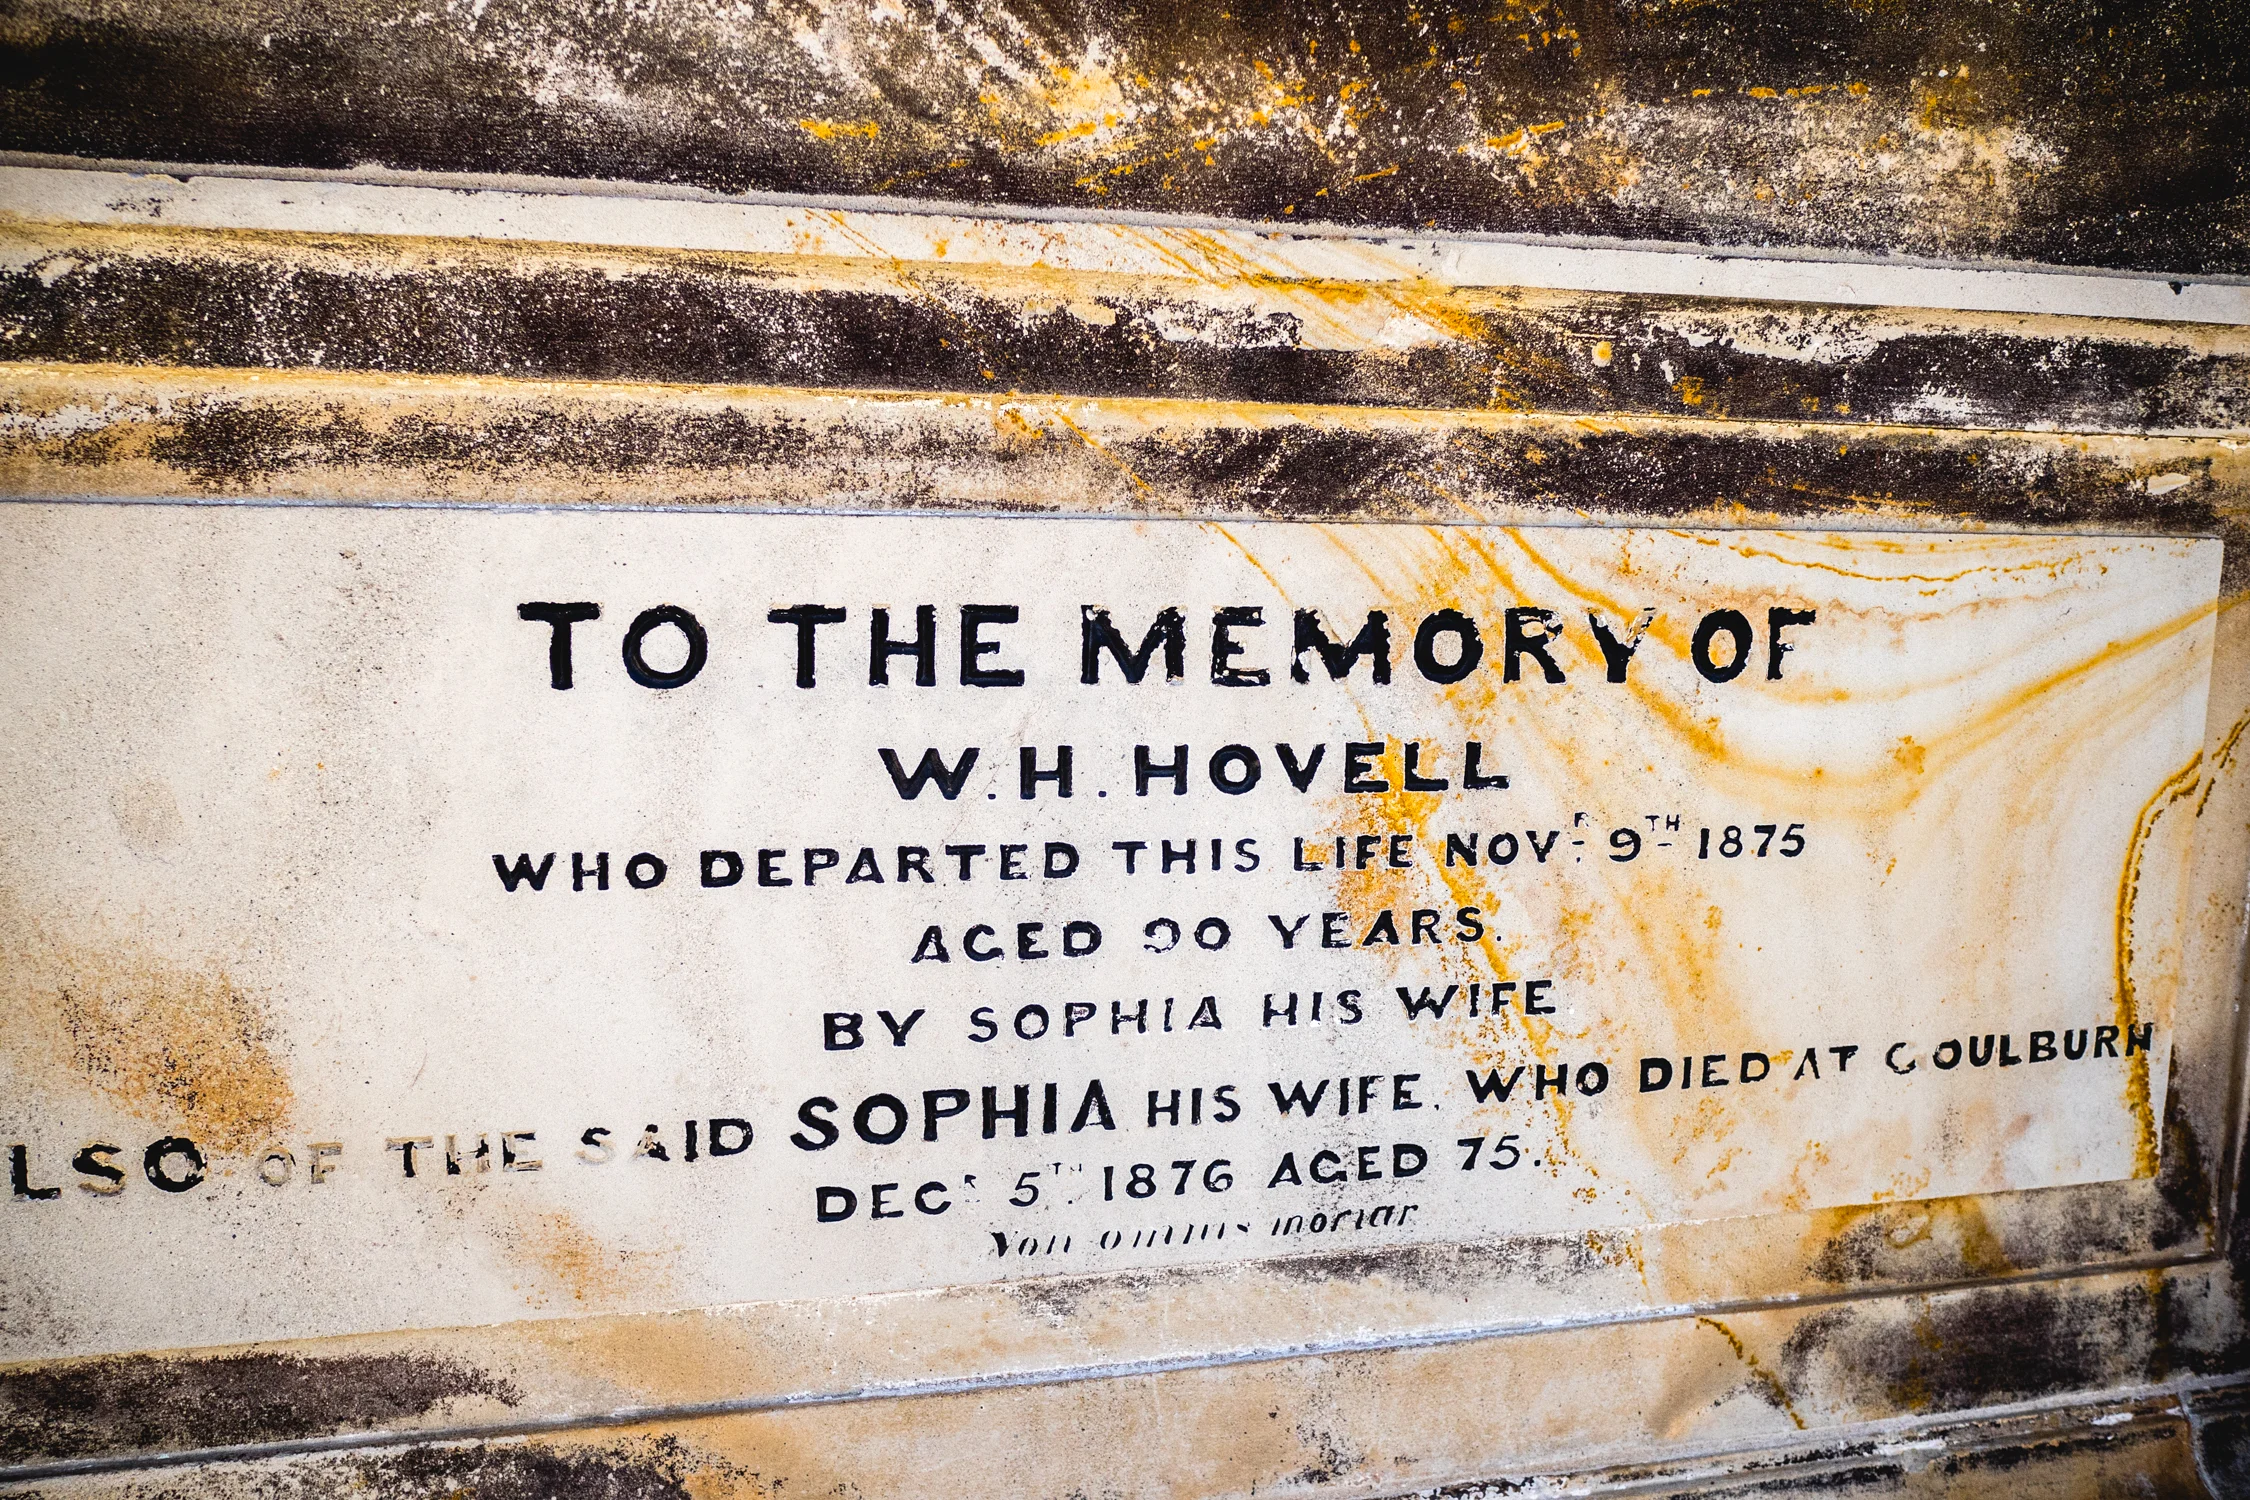 TO THE MEMORY OF
W. H. HOVELL
WHO DEPARTED THIS LIFE NOVR 9TH 1875
AGED 90 YEARS.
BY SOPHIA HIS WIFE
LSO OF THE SAID SOPHIA HIS WIFE. WHO DIED AT GOULBURN
DECR 5TH 1876 AGED 75.
Non omnis moriar